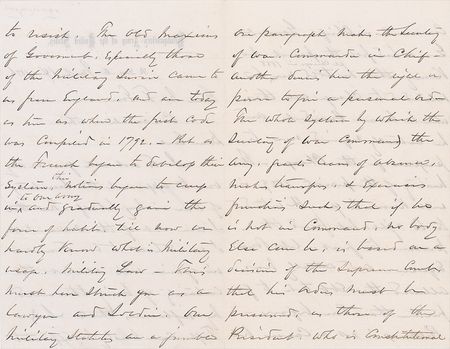 to resist. The old maxims
of Government, Especially those
of the Military Service came to
us from England, and are today
as true as when the first Code
was Compiled in 1792. - But as
the French began to develop their
System, this notions began to creep
in to our army and gradually gains the
force of habit, till now we
hardly Know what is Military
usage, Military Law - This
must have struck you as a
Lawyer and Soldier. Our
Military Statutes are a jumble
One paragraph makes the Secretary
of War, Commander in Chief -
another denies him the right or
power to give a personal order
The whole System by which the
Secretary of War Commands the
Army, grants leaves of absence,
makes transfers, & Exercises
functions such, that if he
is not in Command, no body
Else can be, is based on a
decision of the Supreme Court
that his orders must be
presumed, as those of the
President, who is Constitutional